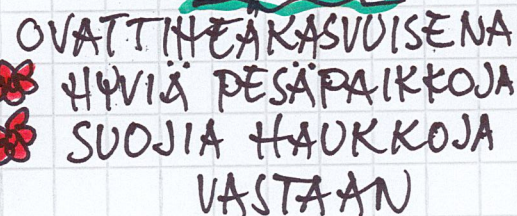 OVAT TIHEÄKASVUISENA
HYVIÄ PESÄPAIKKOJA
SUOJIA HAUKKOJA
VASTAAN